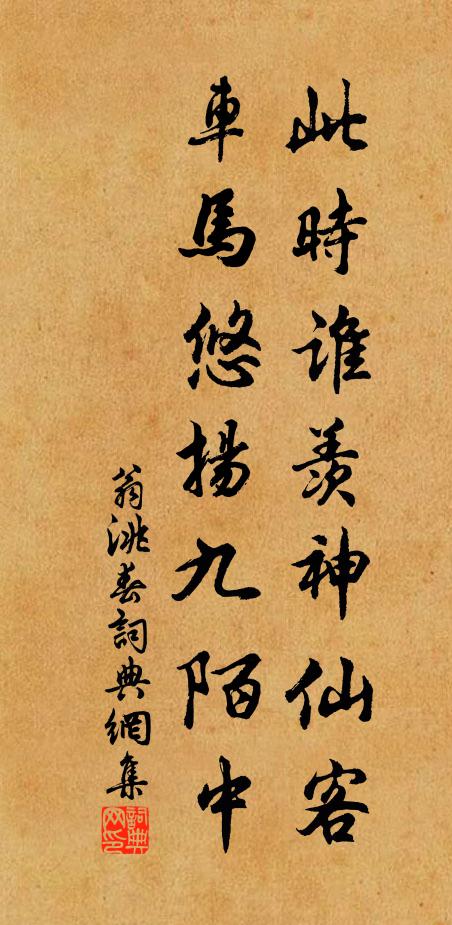 此時誰羨神仙客
車馬悠揚九陌中
翁洮春詞典網集
詞典网印